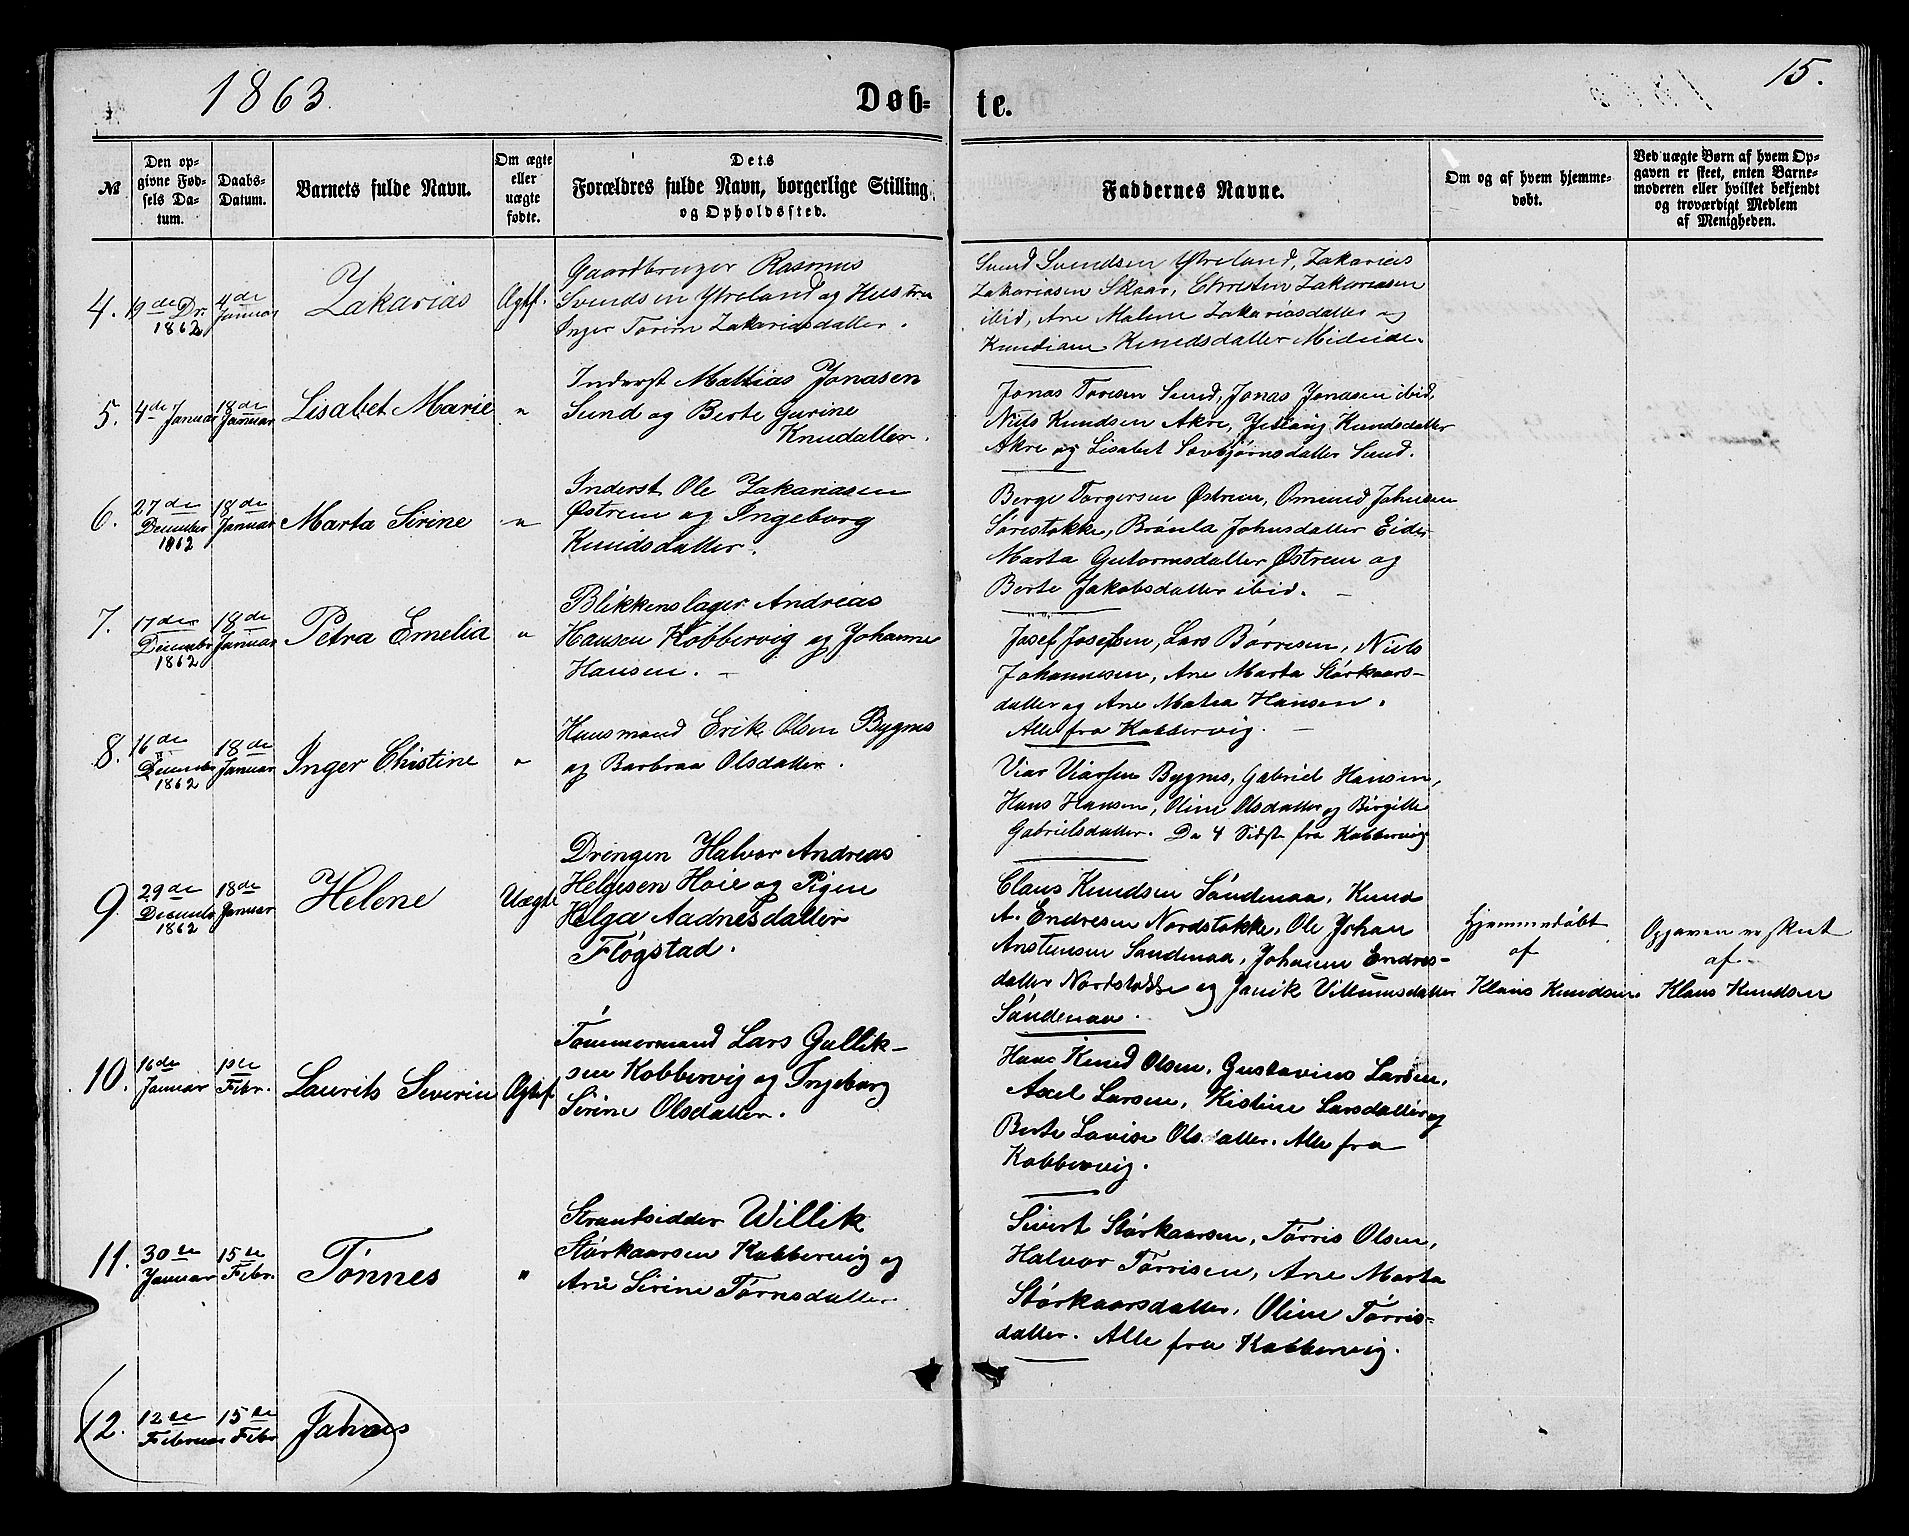 1863. Døb- te. 15.
№
Den opgivne Fødsels Datum.
Daabs-Datum.
Barnets fulde Navn.
Om ægte eller uægte fødte.
Dets Forældres fulde Navn, borgerlige Stilling og Opholdssted.
Faddernes Navne.
Om og af hvem hjemmedøbt.
Ved uægte Børn af hvem Opgaven er skeet, enten Barnemoderen eller hvilket bekjendt og troværdigt Medlem af Menigheden.
4. 19de Dr. 1862 4de Januar Zakarias Ægtf.
Gaardbruger Rasmus
Svendsen Ytreland og Hustru
Inger Torine Zakariasdatter.
Svend Svendsen Ytreland, Zakarias
Zakariasen Skaar, Christen Zakariasen
ibid, Ane Malene Zakariasdatter og
Knudsdatter Mideide.
5. 4de Januar 18de Januar Lisabet Marie "
Inderst Mattias Jonasen
Sund og Berte Gurine
Knudatter.
Jonas Toresen Sund, Jonas Jonasen ibid,
Niels Knudsen Akre, Knudsdatter
Akre og Lisabet Sund.
6. 27de December 1862 18de Januar Marta Sirine "
Inderst Ole Zakariasen
Østrem og Ingeborg
Knudsdatter.
Berge Torgersen Østrem, Omund Johnsen
Sørestokke, Brønla Johnsdatter Eide
Marta Gutormsdatter Østrem og
Berte Jakobsdatter ibid. –
7. 17de December 1862 18de Januar Petra Emelia "
Blikkenslager Andreas
Hansen Kobbervig og Johanne
Hansen. –
Josef Josefsen, Lars Børresen, Niels
Johannesen, Ane Marta Størkaars-
datter og Ane Matea Hansen.
Alle fra Kobbervig. –
8. 16de December 1862 18de Januar Inger Chistine "
Husmand Erik Olsen Bygnes
og Barbraa Olsdatter.
Viar Viarsen Bygnes, Gabriel Hansen,
Hans Hansen, Oline Olsdatter og Birgitte
Gabrielsdatter. De 4 Sidste fra Kobbervig
9. 29de December 1862 18de Januar Helene Uægte
Drengen Halvor Andreas
Helgesen Høie og Pigen
Helga Aadnesdatter
Fløgstad.
Claus Knudsen Sandenaa, Knud
A. Endresen Nordstokke, Ole Johan
Anstensen Sandenaa, Johanne Endres-
datter Nordstokke og Janik Villumsdatter
Sandenaa.
Hjemmedøbt
af
Klaus Knudsen
Opgaven er skeet
af
Klaus Knudsen
10. 16de Januar 1ste Febr. Laurits Severin Ægtef.
Tømmermand Lars Gullik-
sen Kobbervig og Ingeborg
Sirine Olsdatter.
Hans Knud Olsen, Gustavius Larsen,
Axel Larsen, Kistine Larsdatter og
Berte Lovise Olsdatter. Alle fra
Kobbervig.
11. 30te Januar 15de Febr. Tønnes "
Strandsidder Willik
Størkaarsen Kobbervig og
Ane Sirine Tørrisdatter.
Sivert Størkaarsen, Tørris Olsen,
Halvor Tørrisen, Ane Marta
Størkaarsdatter, Oline Tørris-
datter. Alle fra Kobbervig.
12. 12te Februar 15de Febr